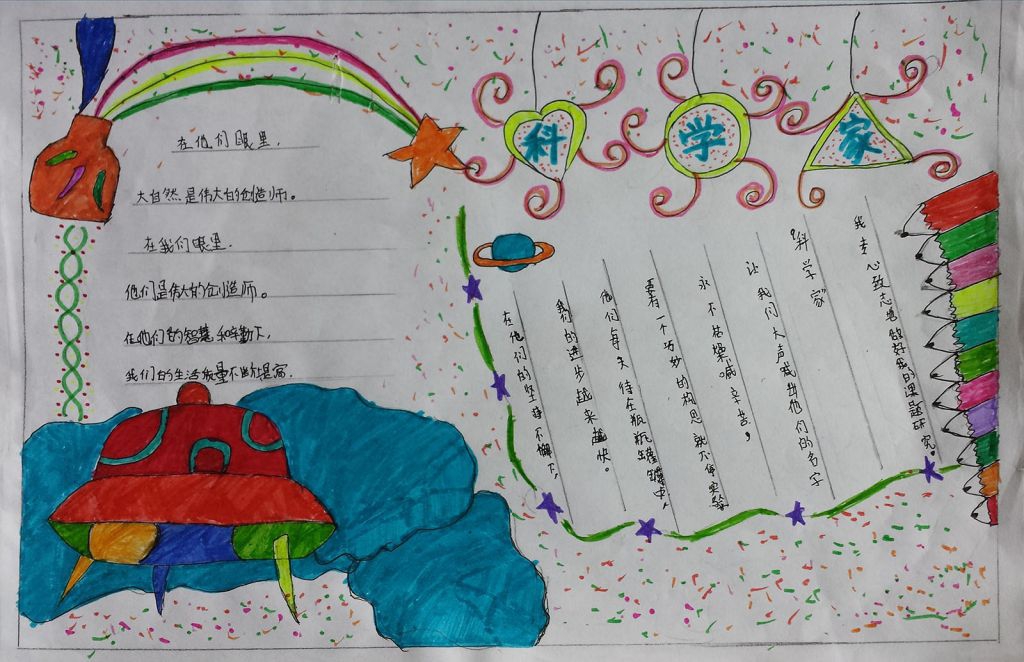 科学家
在他们眼里,
大自然是伟大的创造师。
在我们眼里.
他们是伟大的创造师。
在他们的智慧和辛勤下,
我们的生活质量不断提高.
在他们的坚持不懈下,
我们的进步越来越快。
他们每天待在瓶瓶罐罐中,
有一个巧妙的构思就不停实验
永不枯燥喊辛苦,
让我们大声喊出他们的名字
“科学家”
我专心致志地做好我的课题研究。